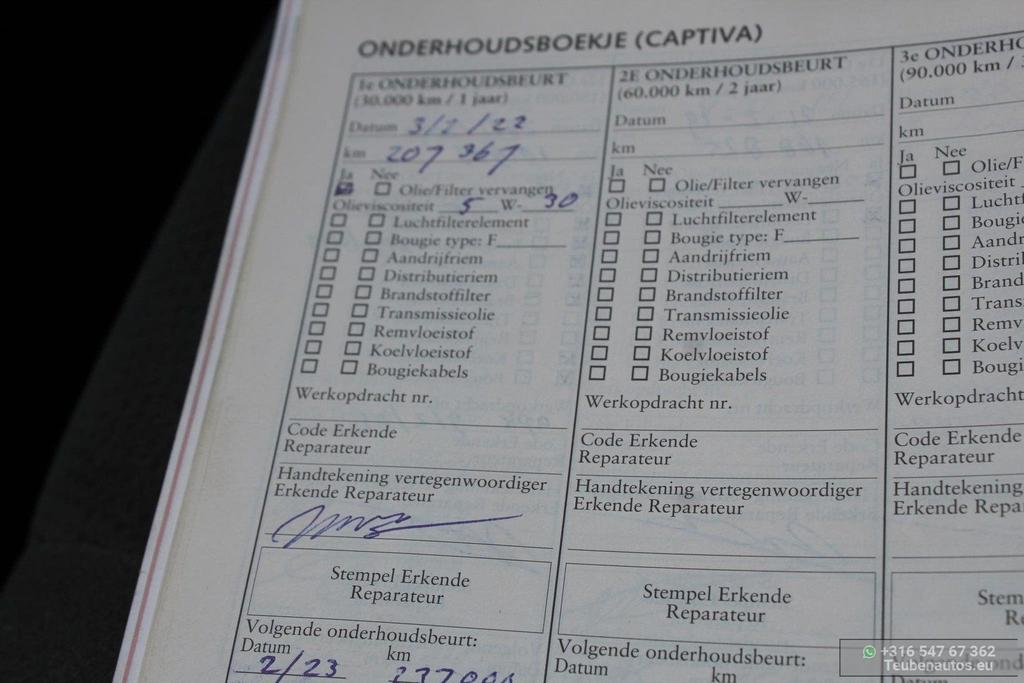 ONDERHOUDSBOEKJE (CAPTIVA)
1e ONDERHOUDSBEURT
(30.000 km / 1 jaar)
Datum 3/2/22
km 207 367
Ja Nee
Olie/Filter vervangen
Olieviscositeit 5 W- 30
Luchtfilterelement
Bougie type: F
Aandrijfriem
Distributieriem
Brandstoffilter
Transmissieolie
Remvloeistof
Koelvloeistof
Bougiekabels
Werkopdracht nr.
Code Erkende
Reparateur
Handtekening vertegenwoordiger
Erkende Reparateur
Stempel Erkende
Reparateur
Volgende onderhoudsbeurt:
Datum km
2/23 237000
2E ONDERHOUDSBEURT
(60.000 km / 2 jaar)
Datum
km
Ja Nee
Olie/Filter vervangen
Olieviscositeit W-
Luchtfilterelement
Bougie type: F
Aandrijfriem
Distributieriem
Brandstoffilter
Transmissieolie
Remvloeistof
Koelvloeistof
Bougiekabels
Werkopdracht nr.
Code Erkende
Reparateur
Handtekening vertegenwoordiger
Erkende Reparateur
Stempel Erkende
Reparateur
Volgende onderhoudsbeurt:
Datum km
3e ONDERHO
(90.000 km /
Datum
km
Ja Nee
Olie/F
Olieviscositeit
Luchtf
Bougie
Aandr
Distri
Brand
Trans
Remv
Koelv
Bougi
Werkopdracht
Code Erkende
Reparateur
Handtekening
Erkende Repa
Stem
Re
+316 547 67 362
Teubenautos.eu